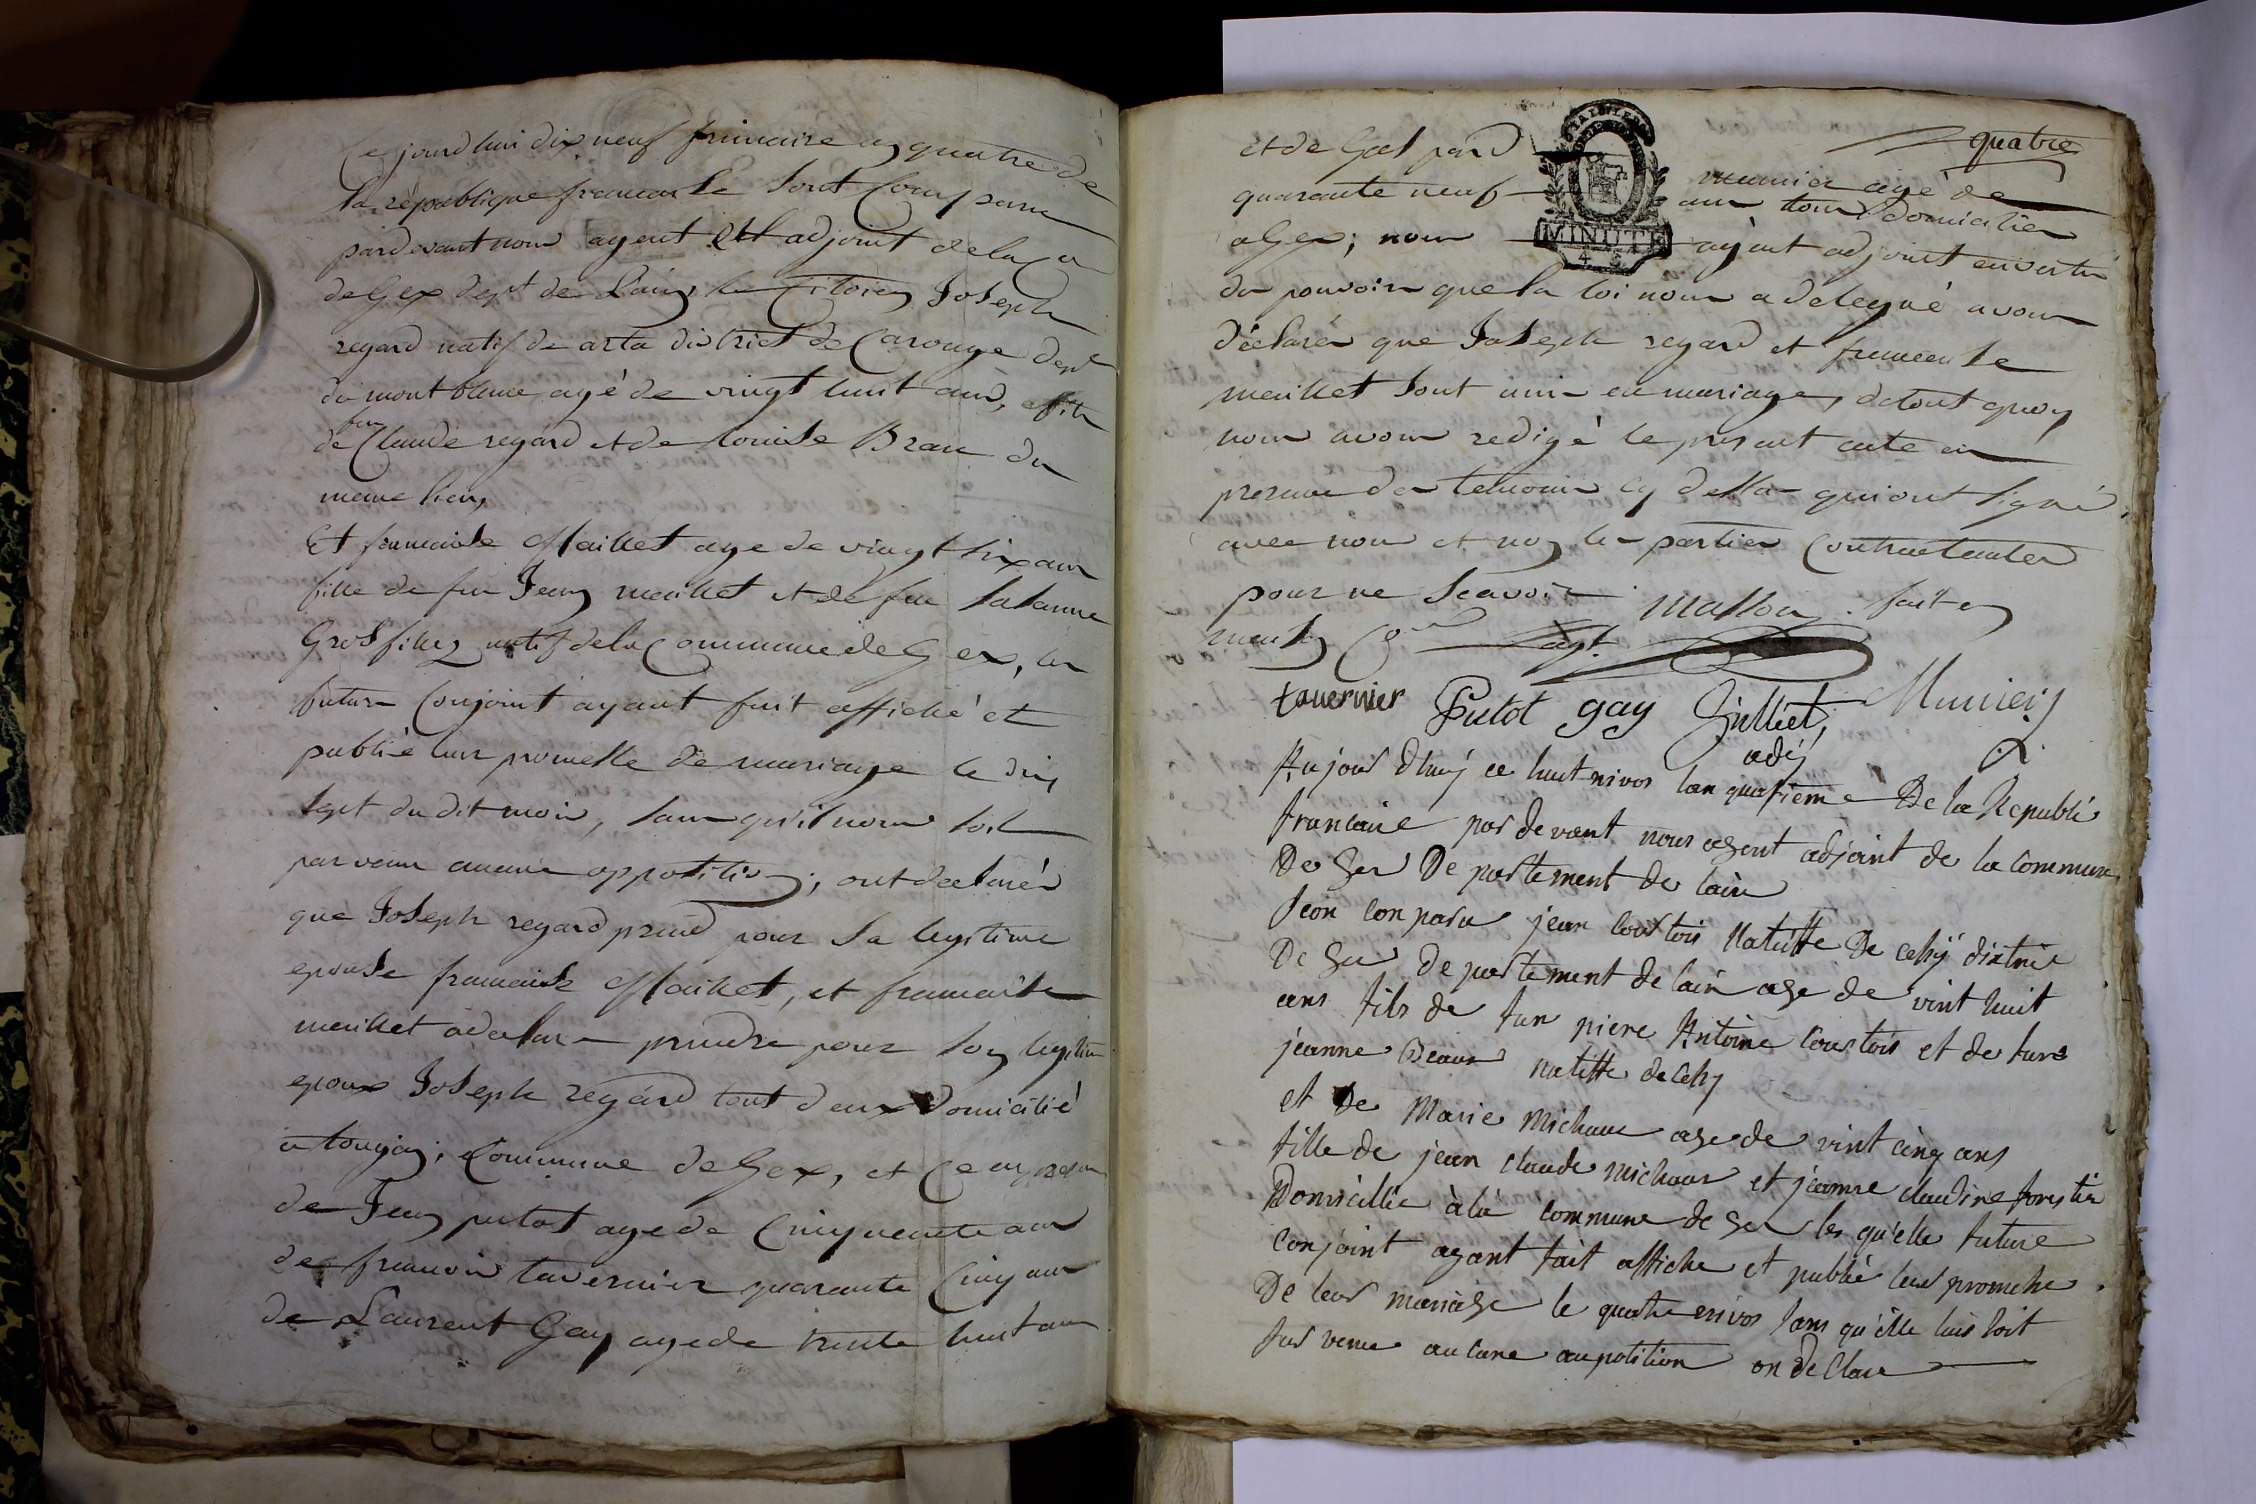 Ce jourd hui dix neuf frimaire an quatre de
la republique francaise sont Comparu
pardevant nous agent et adjoint de la
de Gex dept de Lain, le Citoien Joseph
regard natif de arta district de Carouge dept
du mont blanc, agé de vingt huit ans, fils
feu
de Claude regard et de louise Bran du
meme lieu
Et francaise Maillet age de vingt six ans
fille de feu Jean maillet et de feu Susanne
Grosfilley natif de la Commune de Gex, les
futurs Conjoint ayant fait affiché et
publié leur promesse de mariage le dix
sept du dit mois, sans qu'il nous soit
parvenu aucune opposition, ont declarés
que Joseph regard prend pour Sa legitime
epouse francaise Maillet, et francaise
maillet a declare prendre pour son legitim
epoux Joseph regard tout deux domicilié
a tougin, Commune de Gex, et Ce en presen
de Jean putot age de Cinquante ans
de francois tavernier quarante Cinq ans
de Laurent Gay age de trente huit ans
quatre
et de Gaspard munier agé de
quarante neuf ans tous domicilies
a Gex; nous agent adjoint en vertu
du pouvoir que la loi nous a delegué avons
déclarés que Joseph regard et francaise
maillet sont unis en mariage, de tout quoy
nous avons redigé le present acte en
presence des temoins cy dessus qui ont signé
avec nous et non les parties Contractantes
pour ne Scavoir
MINUTE
tavernier Putot gay Julliet Munier
adj
Aujourd dhuj ce huit nivos lan quatrieme De la Republi
francaise par devant nous agent adjoint de la commune
De Gex De partement de lain
Seon Conparu jean Courtois natiffe De Cesy distric
De Gex De partement de lain age de vint huit
ans fils de fun piere Antoine Courtois et de fune
jeanne natiffe de Cesy
et De Marie Michaux age de vint cinq ans
fille de jean claude michaux et jeanne claudine forestier
Domicillie à la commune de Gex les qu'elle future
Conjoint ayant fait affiche et publié leur promesse
De leur mariage le quatre nivos sans qu'ille luis soit
sur venue aucune aupotition on declare